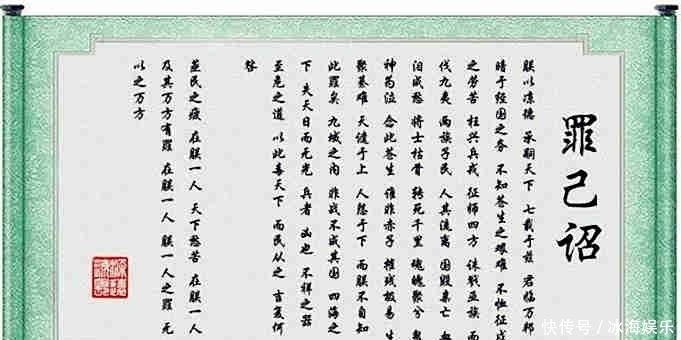 罪己诏
朕以凉德 承嗣天下 七载于兹 君临万邦
暗于经国之务 不知苍生之艰难 不恤征戍
之劳苦 枉兴兵戎 征师四方 诛戮亚族 而
伐九夷 两族子民 人其流离 国毁亡
泊成愁 将士枯骨 转死千里 魂魄聚兮
神药泣 念此苍生 谁非赤子 摧残极易 生
聚綦难 天谴于上 人怨于下 而朕不自知
此罪矣 九域之内 非战不成其国 四海之
下 失天日而无光 兵者 凶也 不祥之器
至危之道 以此毒天下 而民从之 吉复何
咎
民之疲 在朕一人 天下愁苦 在朕一人
及其万方有罪 在朕一人 朕一人之罪 无
以之万方
快传号/冰海娱乐